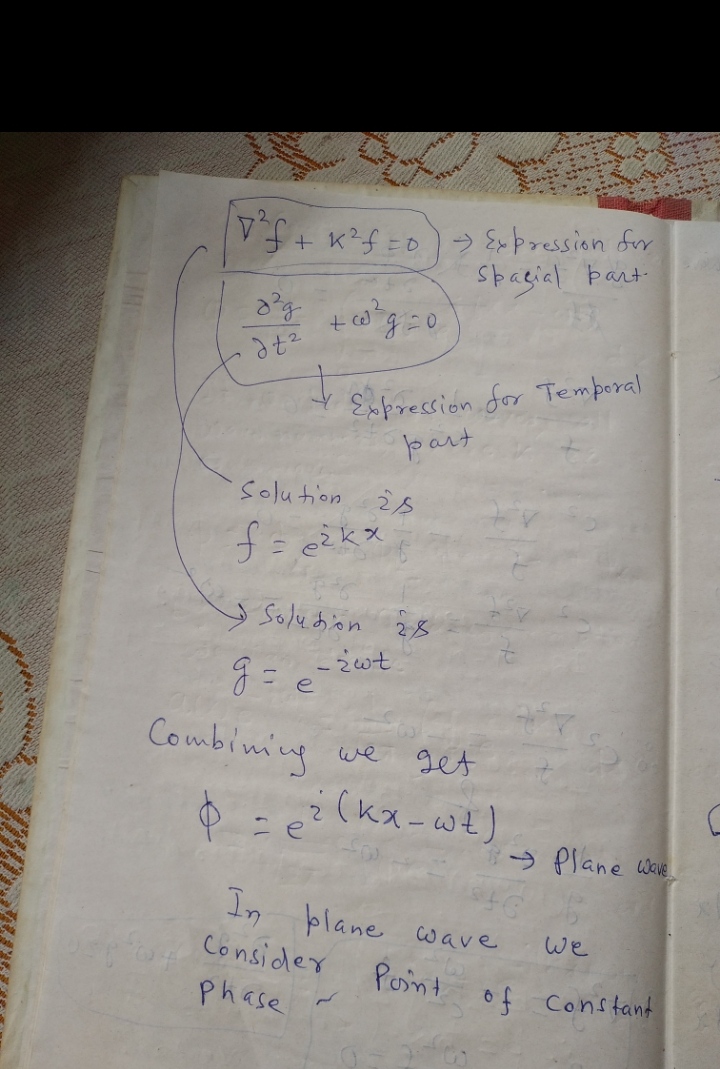 ∇²f + k²f = 0 → Expression for
Spacial part
∂²g/∂t² + ω²g = 0
Expression for Temporal
part
Solution is
f = e^{ikx}
→ Solution is
g = e^{-iωt}
Combining we get
ϕ = e^{i(kx-ωt)}
→ Plane wave
In plane wave we
consider Point of constant
Phase ~